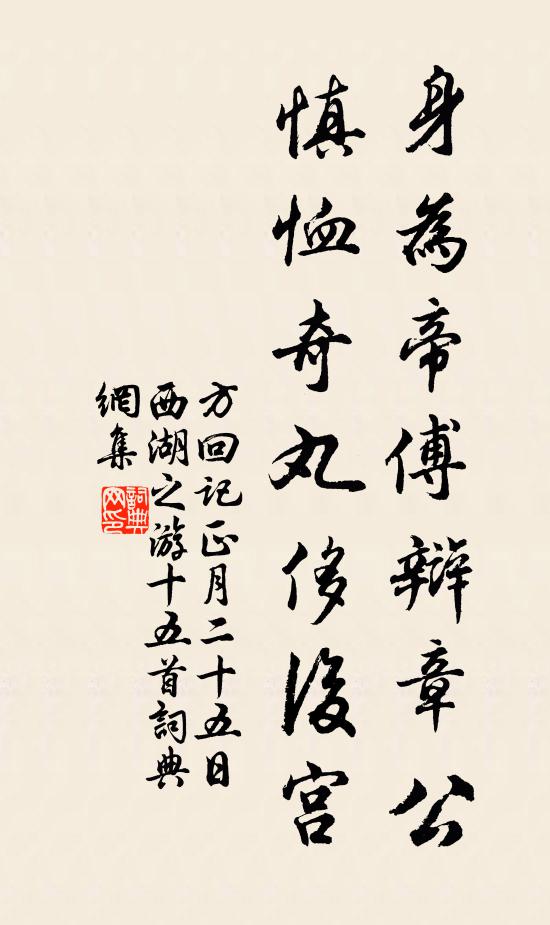 身為帝傅辯章公
慎恤奇丸侈後宮
方回記正月二十五日
西湖之游十五首詞典
網集
詞典网印